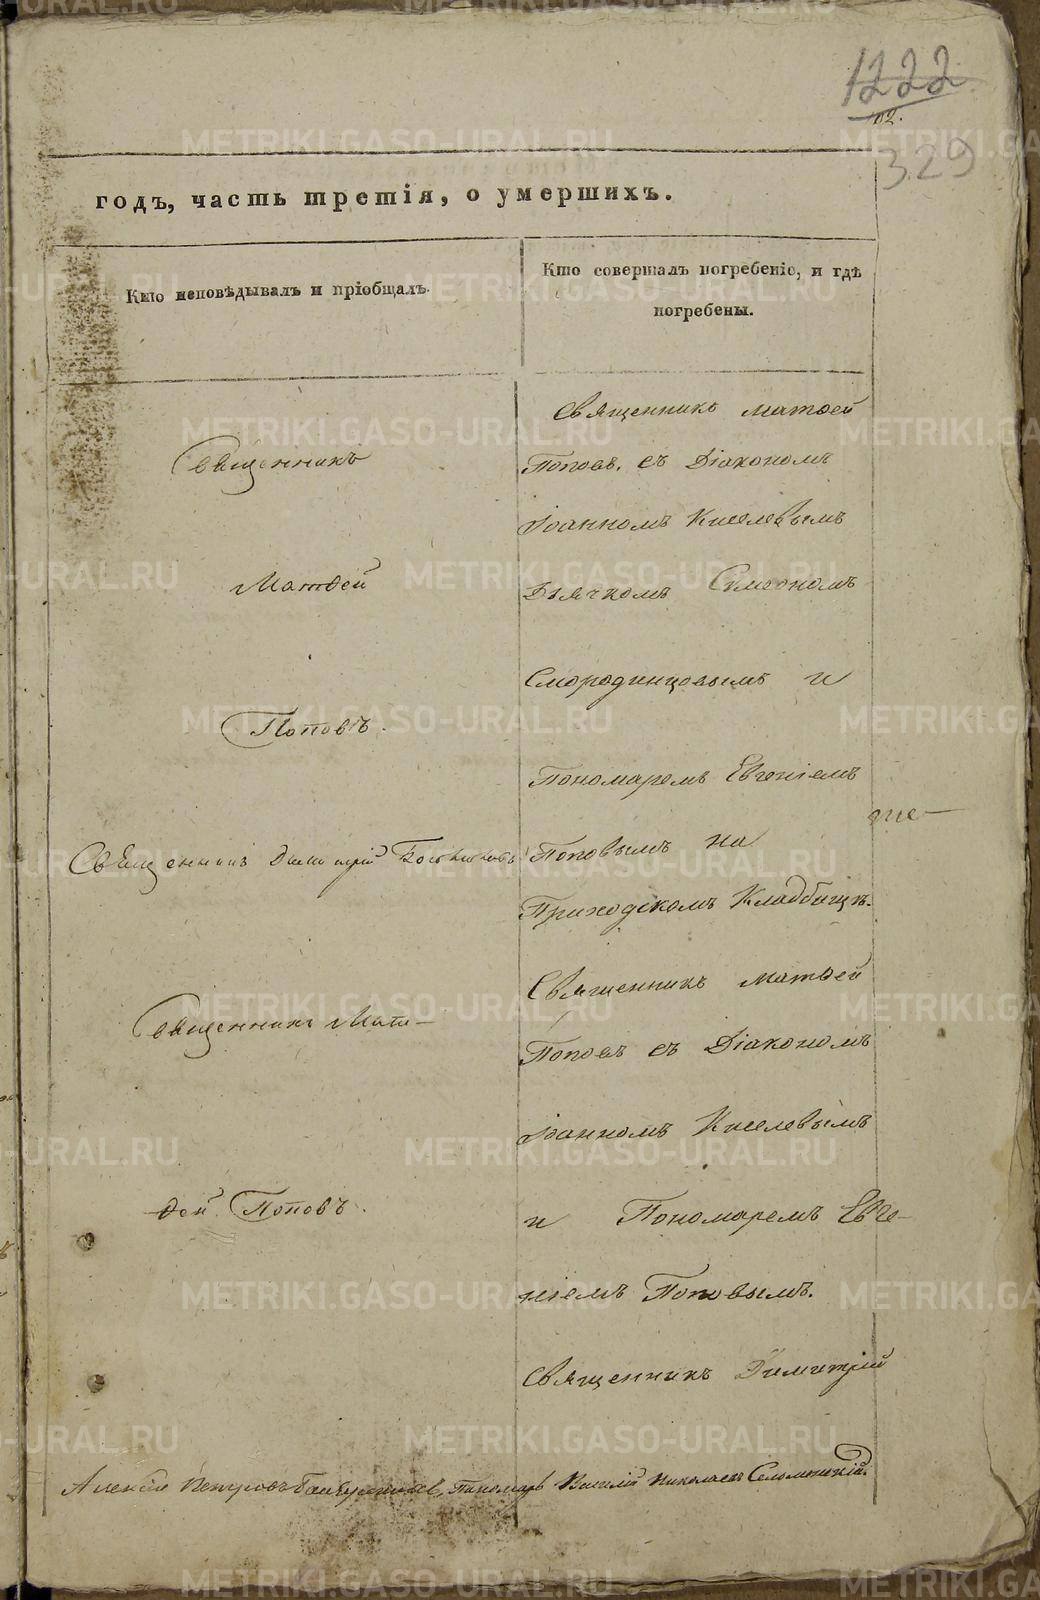 1222
102.
329
годъ, часть третія, о умершихъ.
Кто исповѣдывалъ и пріобщалъ.
Кто совершалъ погребеніе, и гдѣ
погребены.
Священникъ
Матѳей
Поповъ.
Священникъ Димитрій
Священникъ Мат-
ѳей Поповъ.
Священникъ Матѳей
Поповъ, съ Діакономъ
Іоанномъ Киселевымъ
Дьячкомъ Симеономъ
Смородинцовымъ и
Пономаремъ Евгеніемъ
Поповымъ на
Приходскомъ Кладбищѣ.
Священникъ Матѳей
Поповъ съ Діакономъ
Іоанномъ Киселевымъ
и Пономаремъ Евге-
ніемъ Поповымъ.
Священникъ Димитрій
Алексій Петровъ Пономарь Василій Николаевъ
METRIKI.GASO-URAL.RU